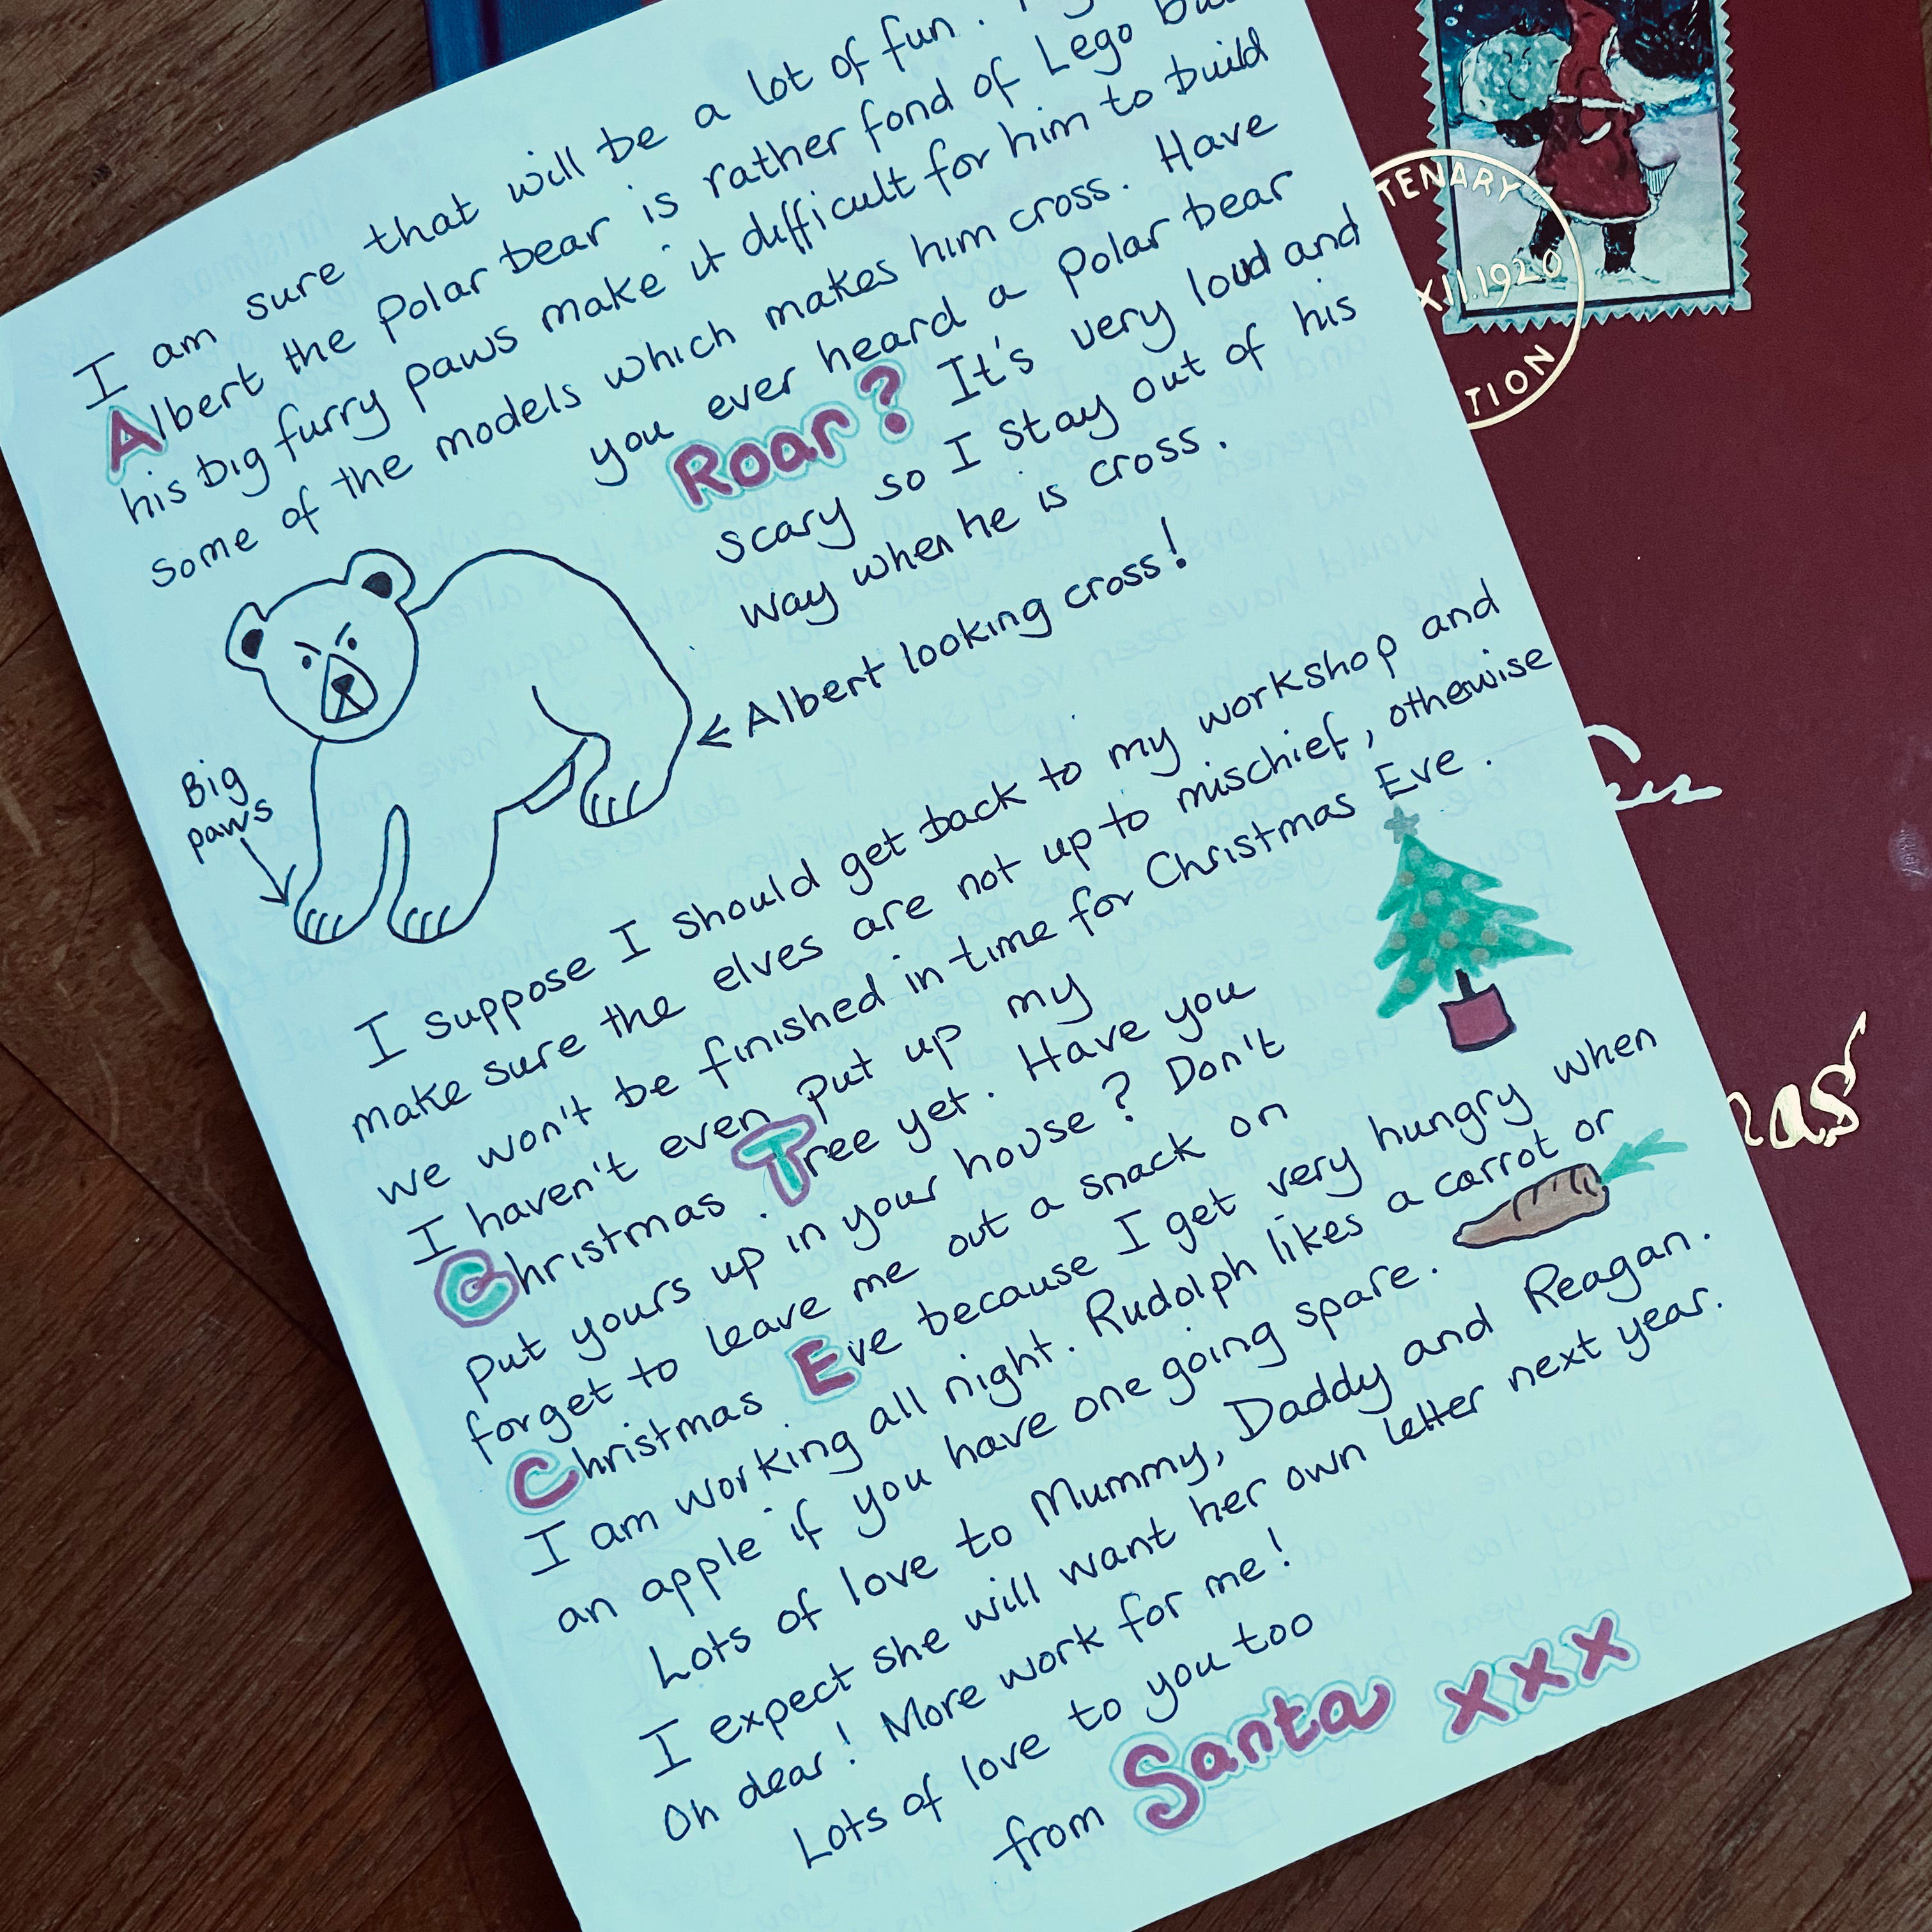 I am sure that will be a lot of fun.
Albert the Polar bear is rather fond of Lego but
his big furry paws make it difficult for him to build
some of the models which makes him cross. Have
you ever heard a Polar bear
Roar? It's very loud and
scary so I stay out of his
way when he is cross.
← Albert looking cross!
Big
paws
I suppose I should get back to my workshop and
make sure the elves are not up to mischief, otherwise
we won't be finished in time for Christmas Eve.
I haven't even put up my
Christmas Tree yet. Have you
put yours up in your house? Don't
forget to leave me out a snack on
Christmas Eve because I get very hungry when
I am working all night. Rudolph likes a carrot or
an apple if you have one going spare.
Lots of love to Mummy, Daddy and Reagan.
I expect she will want her own letter next year.
Oh dear! More work for me!
Lots of love to you too
from Santa xxx
TENARY
XII.1920
TION
as